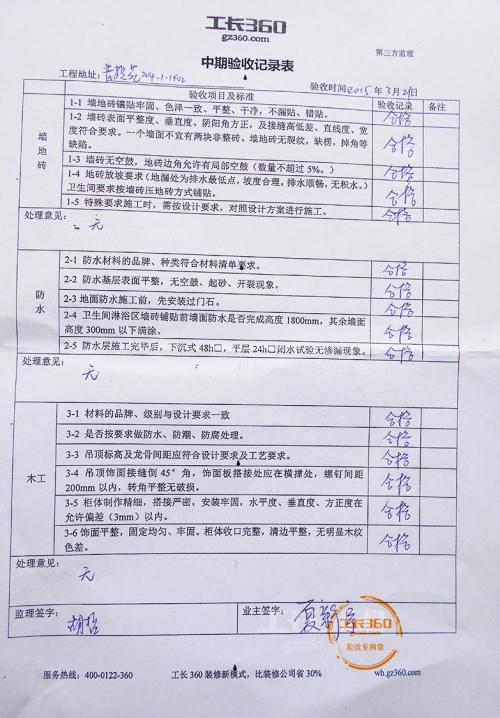 工长360
gz360.com
第三方监理
中期验收记录表
工程地址: 204-1-1402
验收时间2015年3月21日
验收项目及标准 验收记录 备注
墙地砖
1-1 墙地砖镶贴牢固、色泽一致、平整、干净,不漏贴、错贴。 合格
1-2 墙砖表面平整度、垂直度、阴阳角方正,及接缝高低差、直线度、宽
度符合要求。一个墙面不宜有两块非整砖。墙地砖无裂纹,缺楞,掉角等
缺陷。 合格
1-3 墙砖无空鼓,地砖边角允许有局部空鼓(数量不超过 5%。) 合格
1-4 地砖放坡要求(地漏处为排水最低点,坡度合理,排水顺畅,无积水。)
卫生间要求按墙砖压地砖方式铺贴。 合格
1-5 特殊要求施工时,需按设计要求,对照设计方案进行施工。 合格
处理意见:
无
防水
2-1 防水材料的品牌、种类符合材料清单要求。 合格
2-2 防水基层表面平整,无空鼓、起砂、开裂现象。 合格
2-3 地面防水施工前,先安装过门石。 合格
2-4 卫生间淋浴区墙砖铺贴前墙面防水是否完成高度 1800mm,其余墙面
高度 300mm 以下满涂。 合格
2-5 防水层施工完毕后,下沉式 48h□,平层 24h□闭水试验无渗漏现象。 合格
处理意见:
无
木工
3-1 材料的品牌、级别与设计要求一致 合格
3-2 是否按要求做防水、防潮、防腐处理。 合格
3-3 吊顶标高及龙骨间距应符合设计要求及工艺要求。 合格
3-4 吊顶饰面接缝倒 45°角,饰面板搭接处应在横撑处,螺钉间距
200mm 以内,转角平整无破损。 合格
3-5 柜体制作精细,搭接严密,安装牢固,水平度、垂直度、方正度在
允许偏差(3mm)以内。 合格
3-6 饰面平整,固定均匀、牢固。柜体收口完整,清边平整,无明显木纹
色差。 合格
处理意见:
无
监理签字: 业主签字:
胡哲
工长360
验收专用章
服务热线:400-0122-360 工长 360 装修新模式,比装修公司省 30% wh.gz360.com